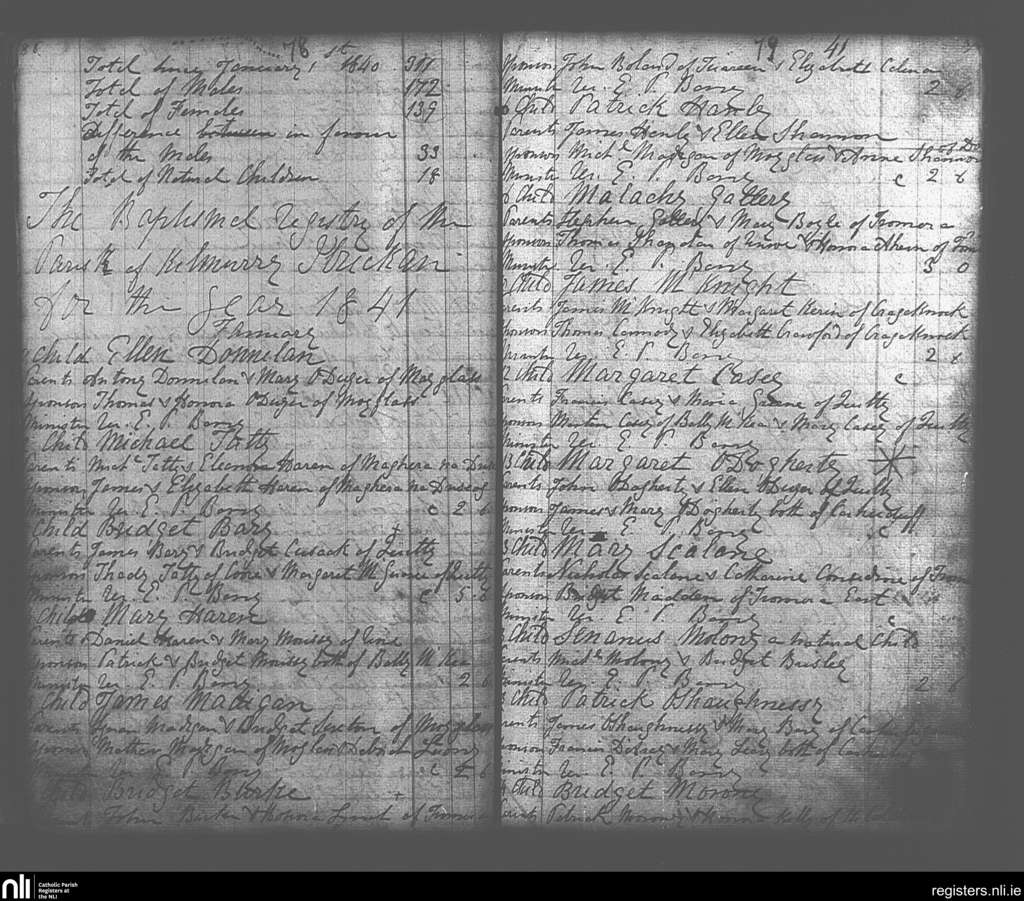 78
Total since January 1st 1840 311
Total of Males 172
Total of Females 139
Difference between in favour
of the Males 33
Total of Natural Children 18
The Baptismal Registry of the
Parish of Kilmurry Ibrickan
for the year 1841
January
Child Ellen Donnelan
Parents Antony Donnelan & Mary O Dwyer of Moyglass
Sponsors Thomas & Honora O Dwyer of Moyglass
Minister Wr. E. P. Barry
Child Michael Tatty
Parents Michl Tatty & Eleonora Haren of Maghera na
Sponsors James & Elizabeth Haren of Maghera na
Minister Wr. E. P. Barry c 2 6
Child Bridget Bary +
Parents James Bary & Bridget Cusack of Quilty
Sponsors Thady Tatty of & Margaret of Quilty
Minister Wr. E. P. Barry c 5 6
Child Mary Haren
Parents Daniel Haren & Mary of
Sponsors Patrick & Bridget both of Bally
Minister Wr. E. P. Barry 2 6
Child James Madigan
Parents Madigan & Bridget Sexton of Moyglass
Sponsors Mathew Madigan of Moyglass &
Minister Wr. E. P. Barry c 2 6
Child Bridget Burke +
Parents John Burke & Honora Lynch of Tromora
79 41
Sponsors John Boland of & Elizabeth
Minister Wr. E. P. Barry 2 6
Child Patrick Hanly
Parents James Henly & Ellen Shannon
Sponsors Michl Madigan of Moyglass & Anne Shannon
Minister Wr. E. P. Barry c 2 6
Child Malachy Gallery
Parents Stephen Gallery & Mary Boyle of Tromora
Sponsors Thomas of & Honora Ahern of
Minister Wr. E. P. Barry 3 0
Child James M Knight
Parents James McKnight & Margaret Kerin of Craggaknock
Sponsors Thomas Kennedy & Elizabeth Crawford of Craggaknock
Minister Wr. E. P. Barry 2 6
Child Margaret Casey c
Parents Francis Casey & Maria Greene of Quilty
Sponsors Martin Casey of Bally & Mary Casey of Quilty
Minister Wr. E. P. Barry
Child Margaret O Dogherty
Parents John O Dogherty & Ellen O Dwyer of Quilty
Sponsors James & Mary O Dogherty both of
Minister Wr. E. P. Barry c
Child Mary Scalane
Parents Nicholas Scalane & Catharine Considine of
Sponsors Bridget Madden of Tromora East
Minister Wr. E. P. Barry c
Child Senanus Molony a natural Child
Parents Michl Molony & Bridget
Minister Wr. E. P. Barry 2 6
Child Patrick O Shaughnessy
Parents James O Shaughnessy & Mary Bary of
Sponsors Francis & Mary both of
Minister Wr. E. P. Barry
Child Bridget Morony
Parents Patrick Morony & Honora Kelly of
nli
Catholic Parish
Registers at
the NLI
registers.nli.ie